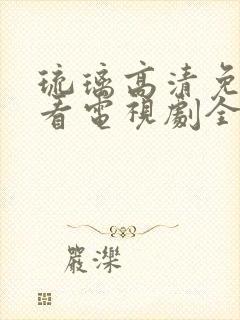 琉璃高清免
看電視劇全
嚴濼